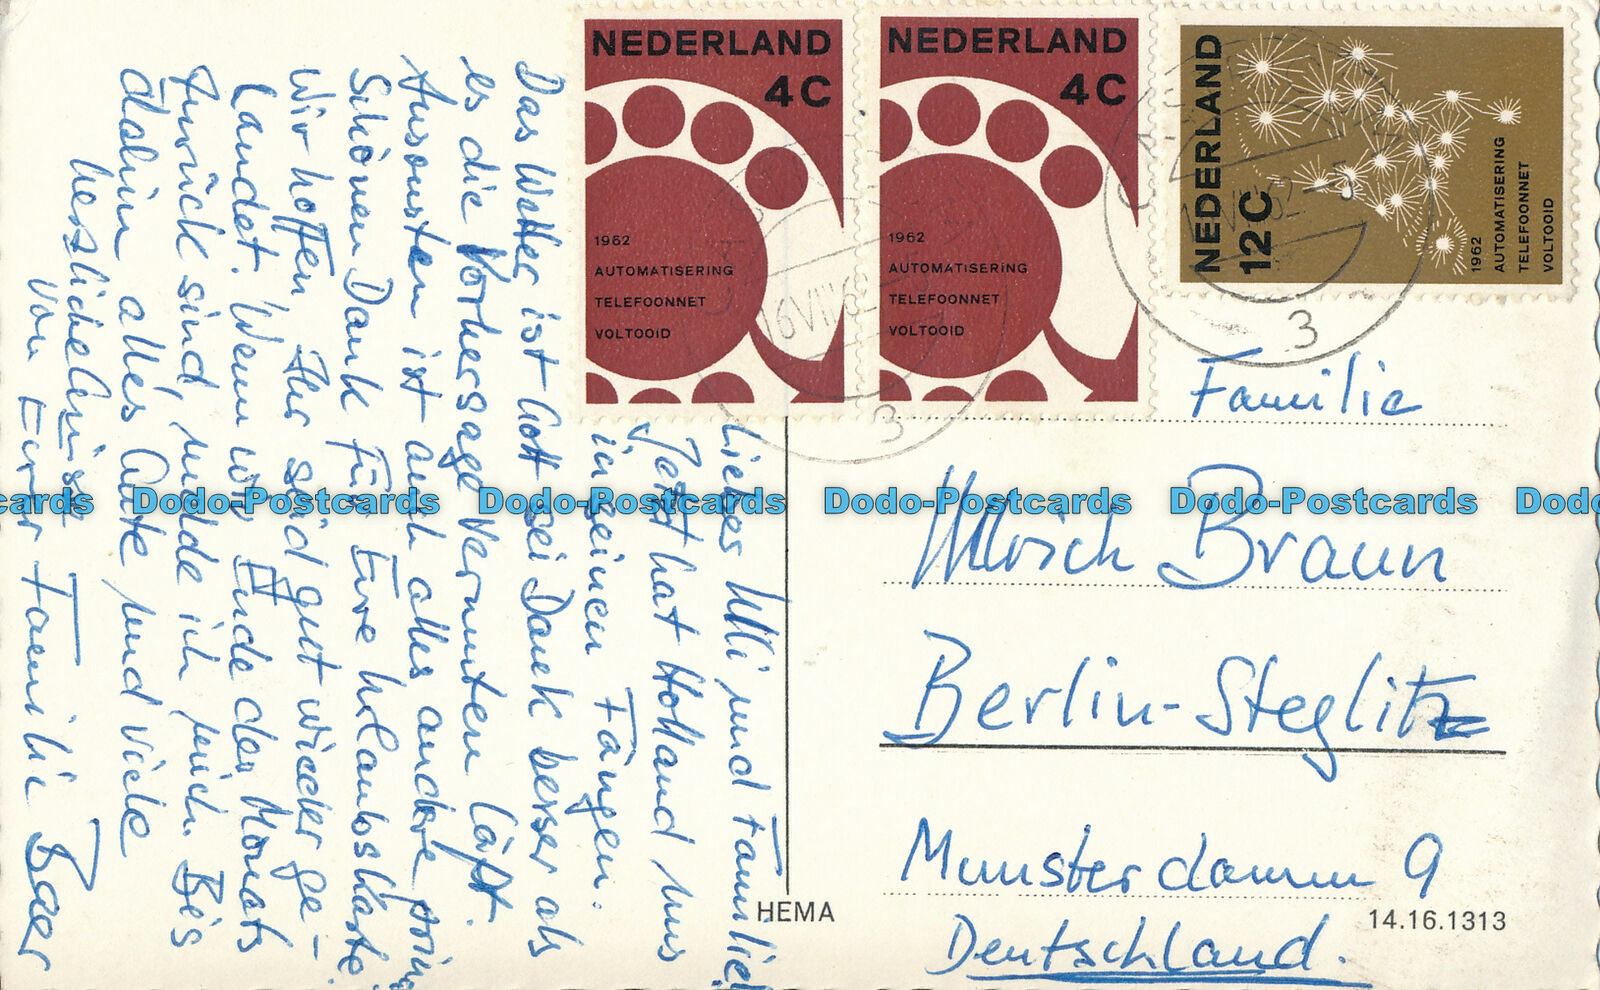 NEDERLAND
4C
1962
AUTOMATISERING
TELEFOONNET
VOLTOOID
NEDERLAND
4C
1962
AUTOMATISERING
TELEFOONNET
VOLTOOID
NEDERLAND
12C
1962
AUTOMATISERING
TELEFOONNET
VOLTOOID
3
3
Liebes Ulli und Familie!
Jetzt hat Holland uns
in seinen Fängen.
Das Wetter ist Gott sei Dank besser als
es die Vorhersage vermuten läßt.
Ansonsten ist auch alles andere prima
Schönen Dank für Eure Urlaubskarte.
Wir hoffen, Ihr seid gut wieder ge-
landet. Wenn wir Ende des Monats
zurück sind, melde ich mich. Bis
dahin alles Gute und viele
herzliche Grüsse
von Eurer Familie Baer
Familie
Ulrich Braun
Berlin-Steglitz
Munsterdamm 9
Deutschland.
HEMA
14.16.1313
cards
Dodo-Postcards
Dodo-Postcards
Dodo-Postcards
Dodo-Postcards
Dodo